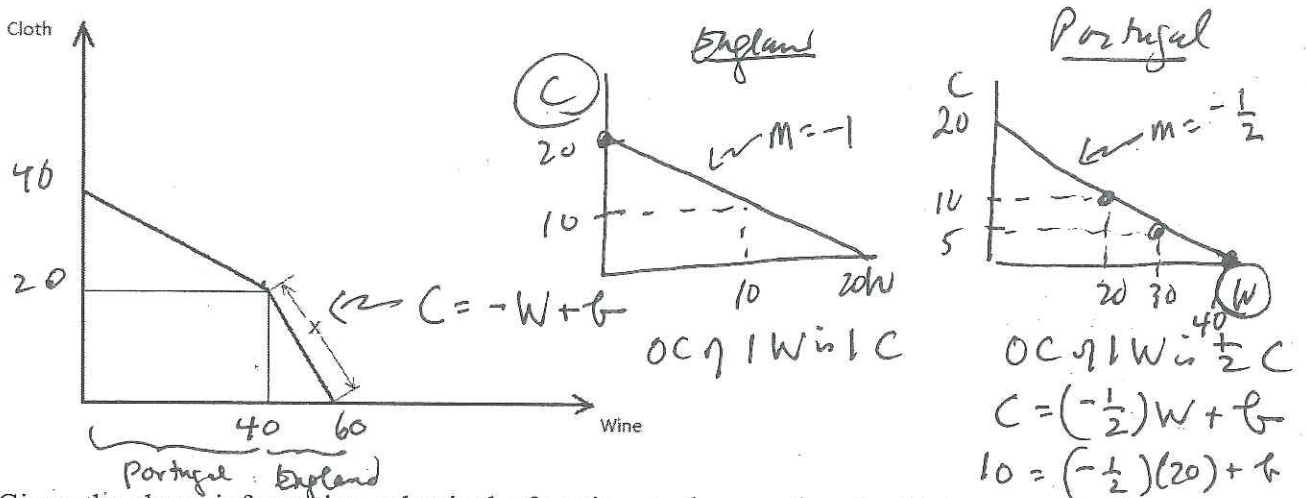 Cloth
40
20
40 60
Wine
Portugal England
x
C = -W + b
England
C
20
10
m = -1
10 20W
OC of 1 W is 1 C
Portugal
C
20
10
5
m = -1/2
20 30 40 W
OC of 1 W is 1/2 C
C = (-1/2)W + b
10 = (-1/2)(20) + b